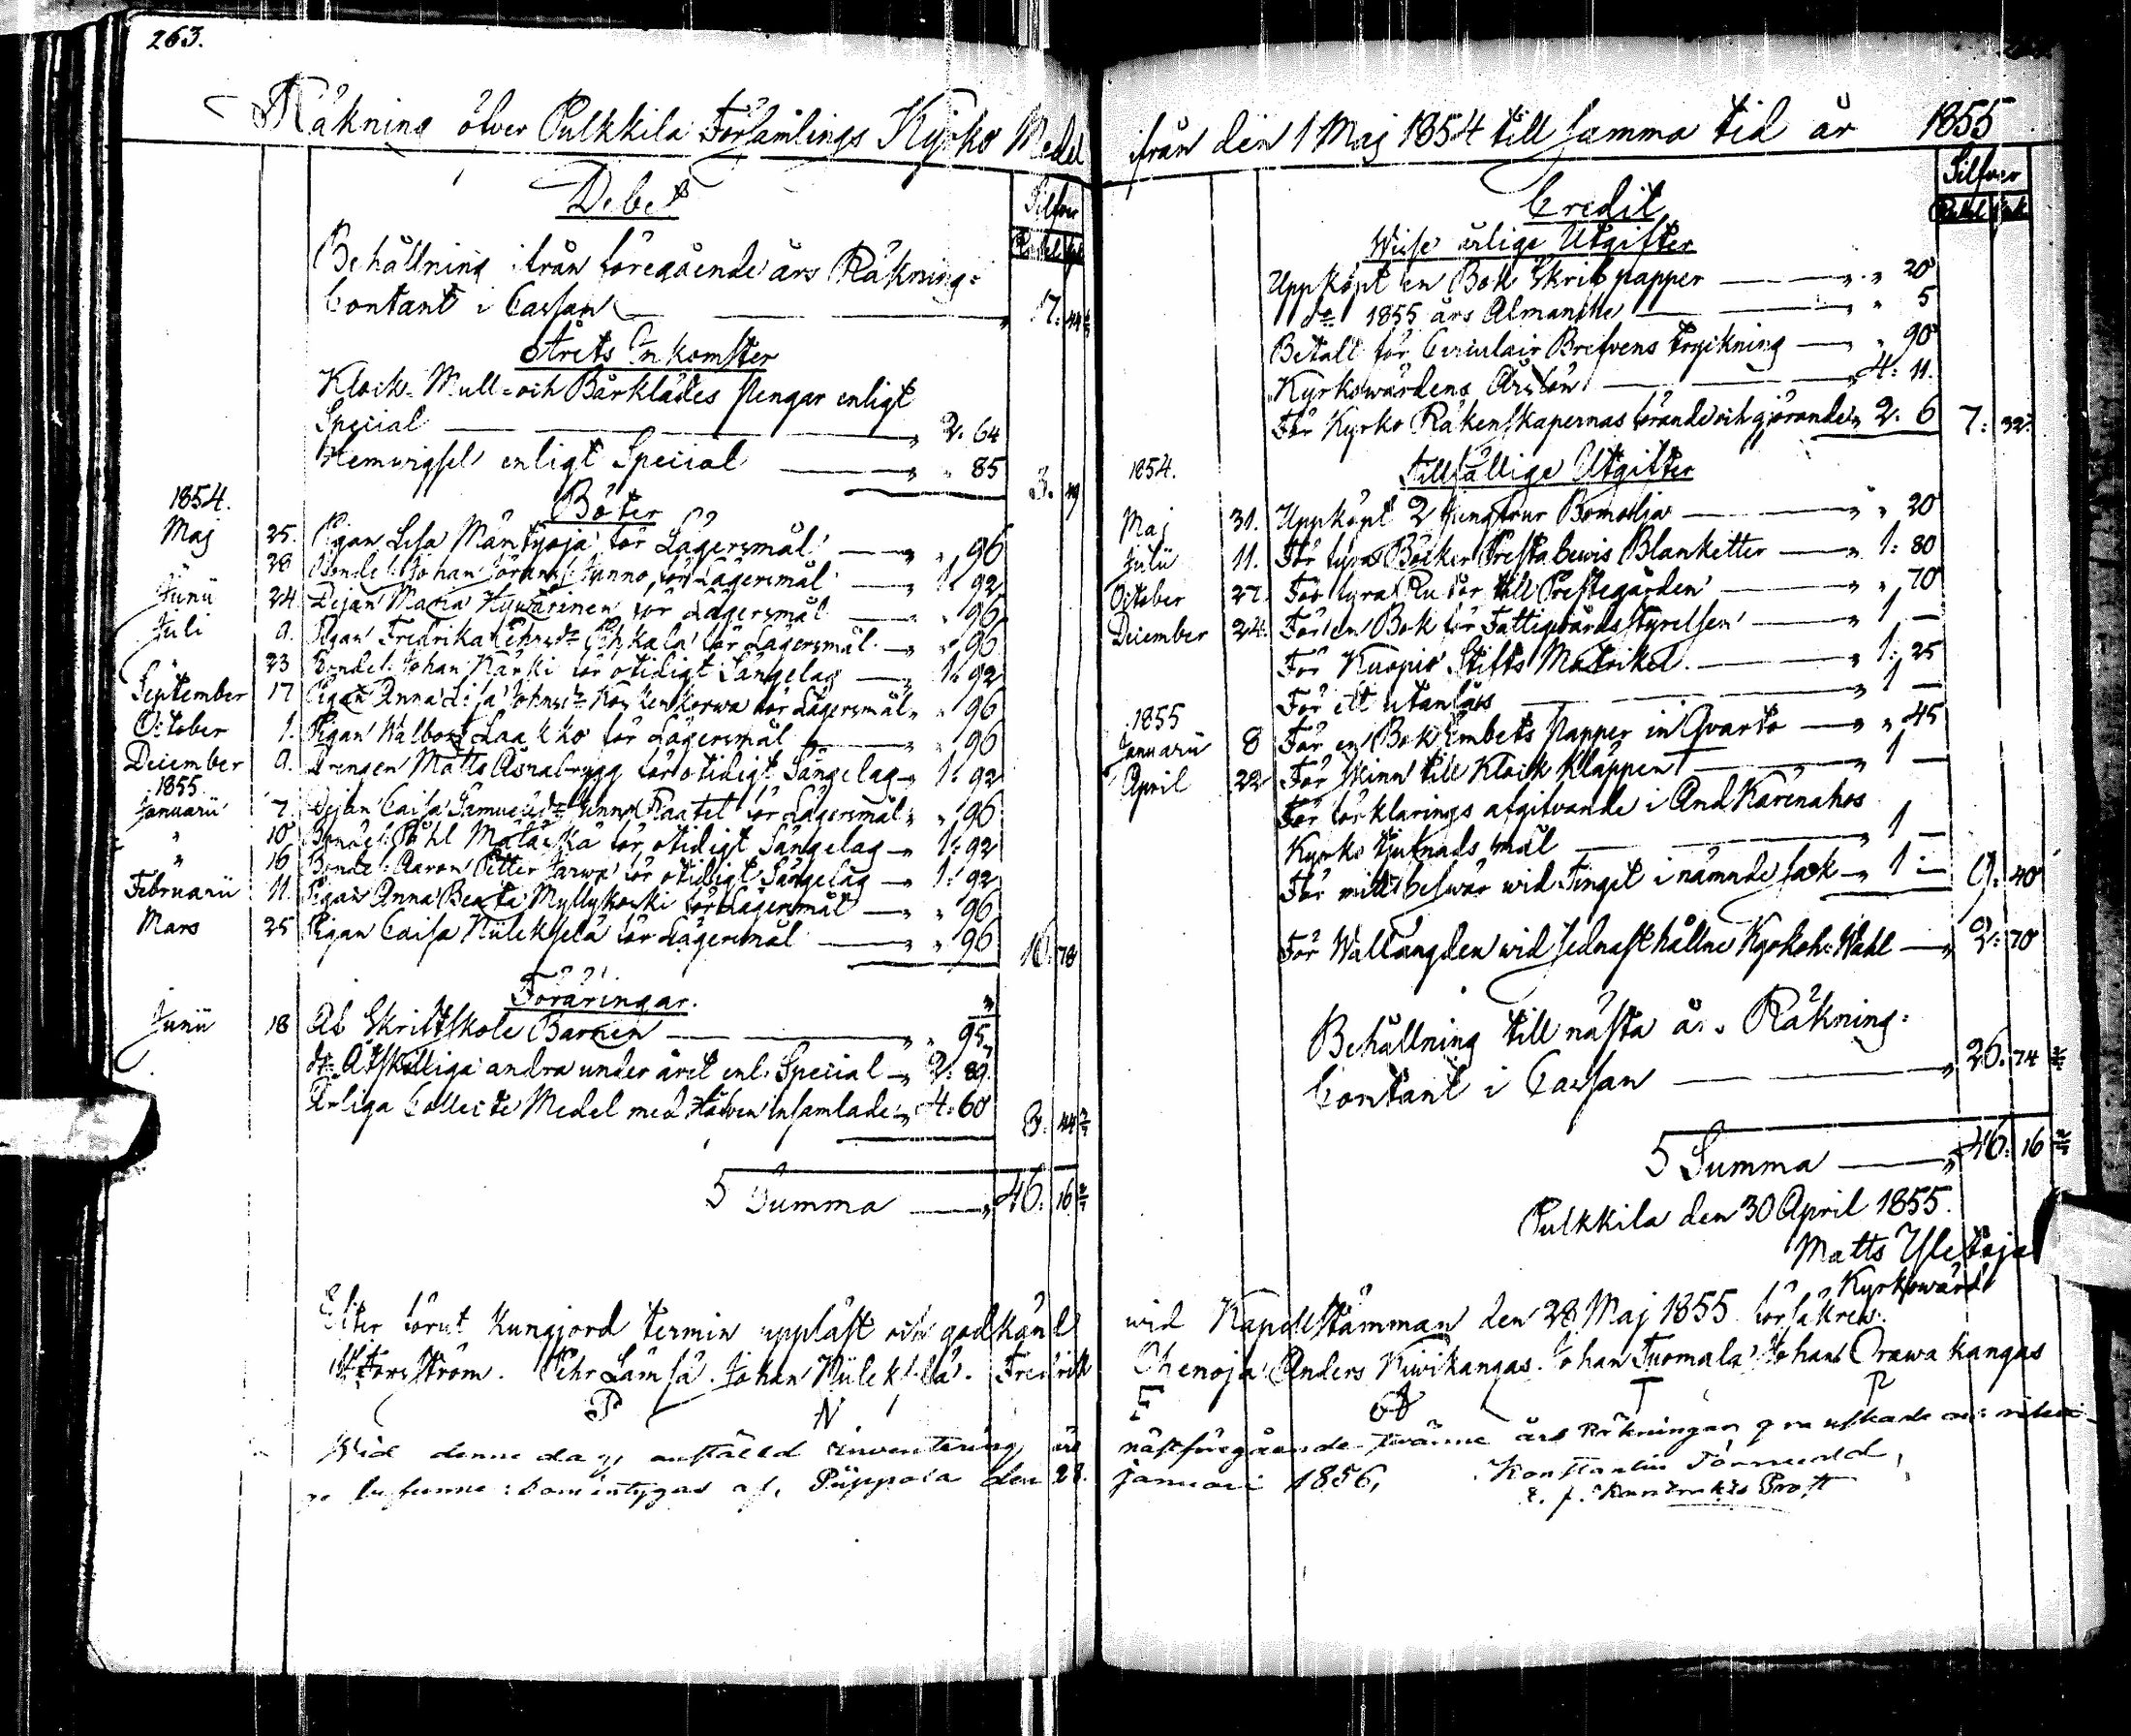 263.
Räkning öfver Pulkkila Församlings Kyrko Medel
Debet
Silfver
Rubel
Behållning ifrån föregående års Räkning:
Contant i Cassan — „ 17: 44
Årets Inkomster
Klock- Mull- och Bårklädes pengar enligt
Special — „ 2. 64
Hemvigsel enligt Special — „ „ 85 3. 49
1854. Böter
Maj 25. Pigan Lisa Mäntyoja för Lägersmål — „ „ 96
28 Bonden Johan Jöranss: Junno för Lägersmål — „ 1: 92
Junii 24. Pejan Maria Hyvärinen för Lägersmål — „ 96
Juli 9. Pigan Fredrika för Lägersmål — „ „ 96
23 Bonden Johan Kärki för otidigt Sängelag — „ 1: 92
September 17 Pigan Anna Lisa Johansdr Koskenkorwa för Lägersmål „ „ 96
October 1. Pigan Walborg Laakko för Lägersmål — „ „ 96
December 9. Drengen Matts Åsnabrygg för otidigt Sängelag „ 1: 92
1855.
Januarii 7. Pejan Caisa Samuelsdr Junno Raatel för Lägersmål „ „ 96
„ 10 Bonden Påhl Mälaskä för otidigt Sängelag „ 1: 92
„ 16 Bonden Aaron Petter Jarwa för otidigt Sängelag — „ 1: 92
Februarii 11. Pigan Anna Beata Myllykoski för Lägersmål — „ „ 96
Mars 25 Pigan Caisa Niileksela för Lägersmål — „ „ 96 16. 78
Föräringar.
Junii 18 Af Skriftskole Barnen — „ „ 95
do Åtskilliga andra under året enl. Special „ 2: 89
Årliga Collecte Medel med Håfven insamlade „ 4: 60 8. 44
S Summa — „ 46. 16
Efter förut kungjord termin uppläst och godkänd
Forsström. Pehr Lämsä. Johan Niileksela. Fredrik
P N
Wid denne dag anställd inventering äro
befunne: som intygas af. Piippola den 28.
ifrån den 1 Maj 1854 till samma tid år 1855
Credit
Silfver
Rubel
Wisse årlige Utgifter
Uppköpt en Bok Skrifpapper — „ „ 20
do 1855 års Almanche — „ 5
Betalt för Circulair Brefvens — „ „ 90
Kyrkowärdens Årslön — „ 4: 11.
För Kyrko Räkenskapernas förande och gjörande „ 2. 6 7: 32
1854. Tillfällige Utgifter
Maj 31. Uppköpt 2 jungfrur Bomolja — „ „ 20
Julii 11. För fyra Böcker Presta bewis Blanketter — „ 1: 80
October 27. För fyra Rutor till Prestegården — „ „ 70
December 24. För en Bok för Fattigvårds Styrelsen — „ 1 —
För Kuopio Stifts Matrikel. — „ 1: 25
För ett utanlås — „ 1 —
1855
Januarii 8 För en Bok Embets papper in Qvarto — „ „ 45
April 22 För skinn till Klock kläppen — „ 1 —
För förklarings afgifvande i And Karenahos
Kyrko tjufnads mål — „ 1 —
För mitt beswär wid Tinget i nämnde sak „ 1: — 9: 40
För Wallängden wid sednast hållne Kyrkoh: Wahl — „ 2: 70
Behållning till nästa års Räkning:
Contant i Cassan — „ 26. 74
S Summa — „ 46: 16
Pulkkila den 30 April 1855.
Matts Yletoja
Kyrkowärd
wid Kapellstämman den 28 Maj 1855 försäkras:
Ohenoja Anders Kiwikangas. Johan Tuomala Johan Orawakangas
F T
nästföregående twänne års Räkningar granskade och
Januari 1856,
Konstantin Törnudd,
t. f. Kontrakts Prost